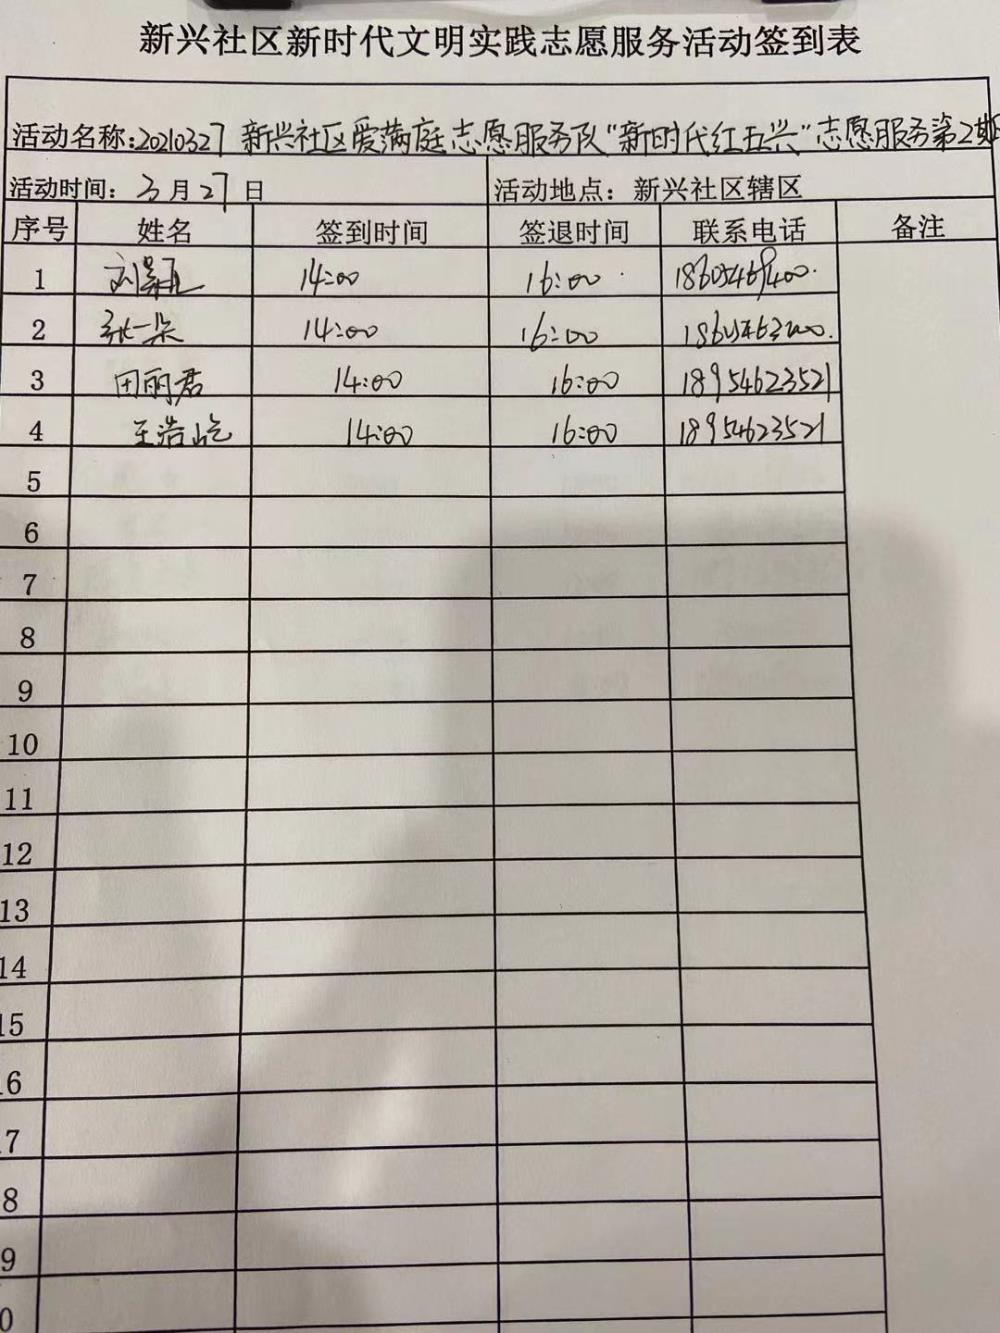 新兴社区新时代文明实践志愿服务活动签到表
活动名称:20210327 新兴社区爱满庭志愿服务队"新时代红五兴"志愿服务第2期
活动时间: 3月27日 活动地点: 新兴社区辖区
序号 姓名 签到时间 签退时间 联系电话 备注
1 刘 14:00 16:00
2 张一朵 14:00 16:00
3 田丽君 14:00 16:00 18954623521
4 王浩屹 14:00 16:00 18954623521
5
6
7
8
9
10
11
12
13
14
15
16
17
8
9
0